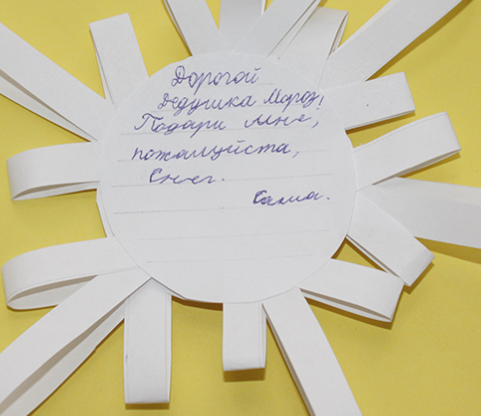 Дорогой
Дедушка Мороз!
Подари мне,
пожалуйста,
Снег.
Саша.